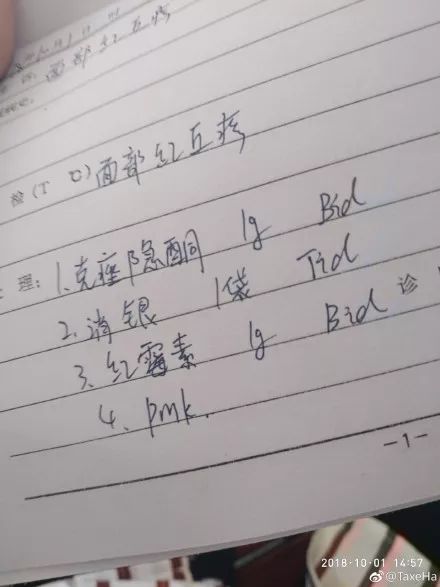 面部红丘疹
检(T ℃)面部红丘疹
理: 1.克痤隐酮 1g Bid
2.消银 1袋 Tid
3、红霉素 1g Bid 诊
4、pmk.
-1-
2018-10-01 14:57
@TaxeHa